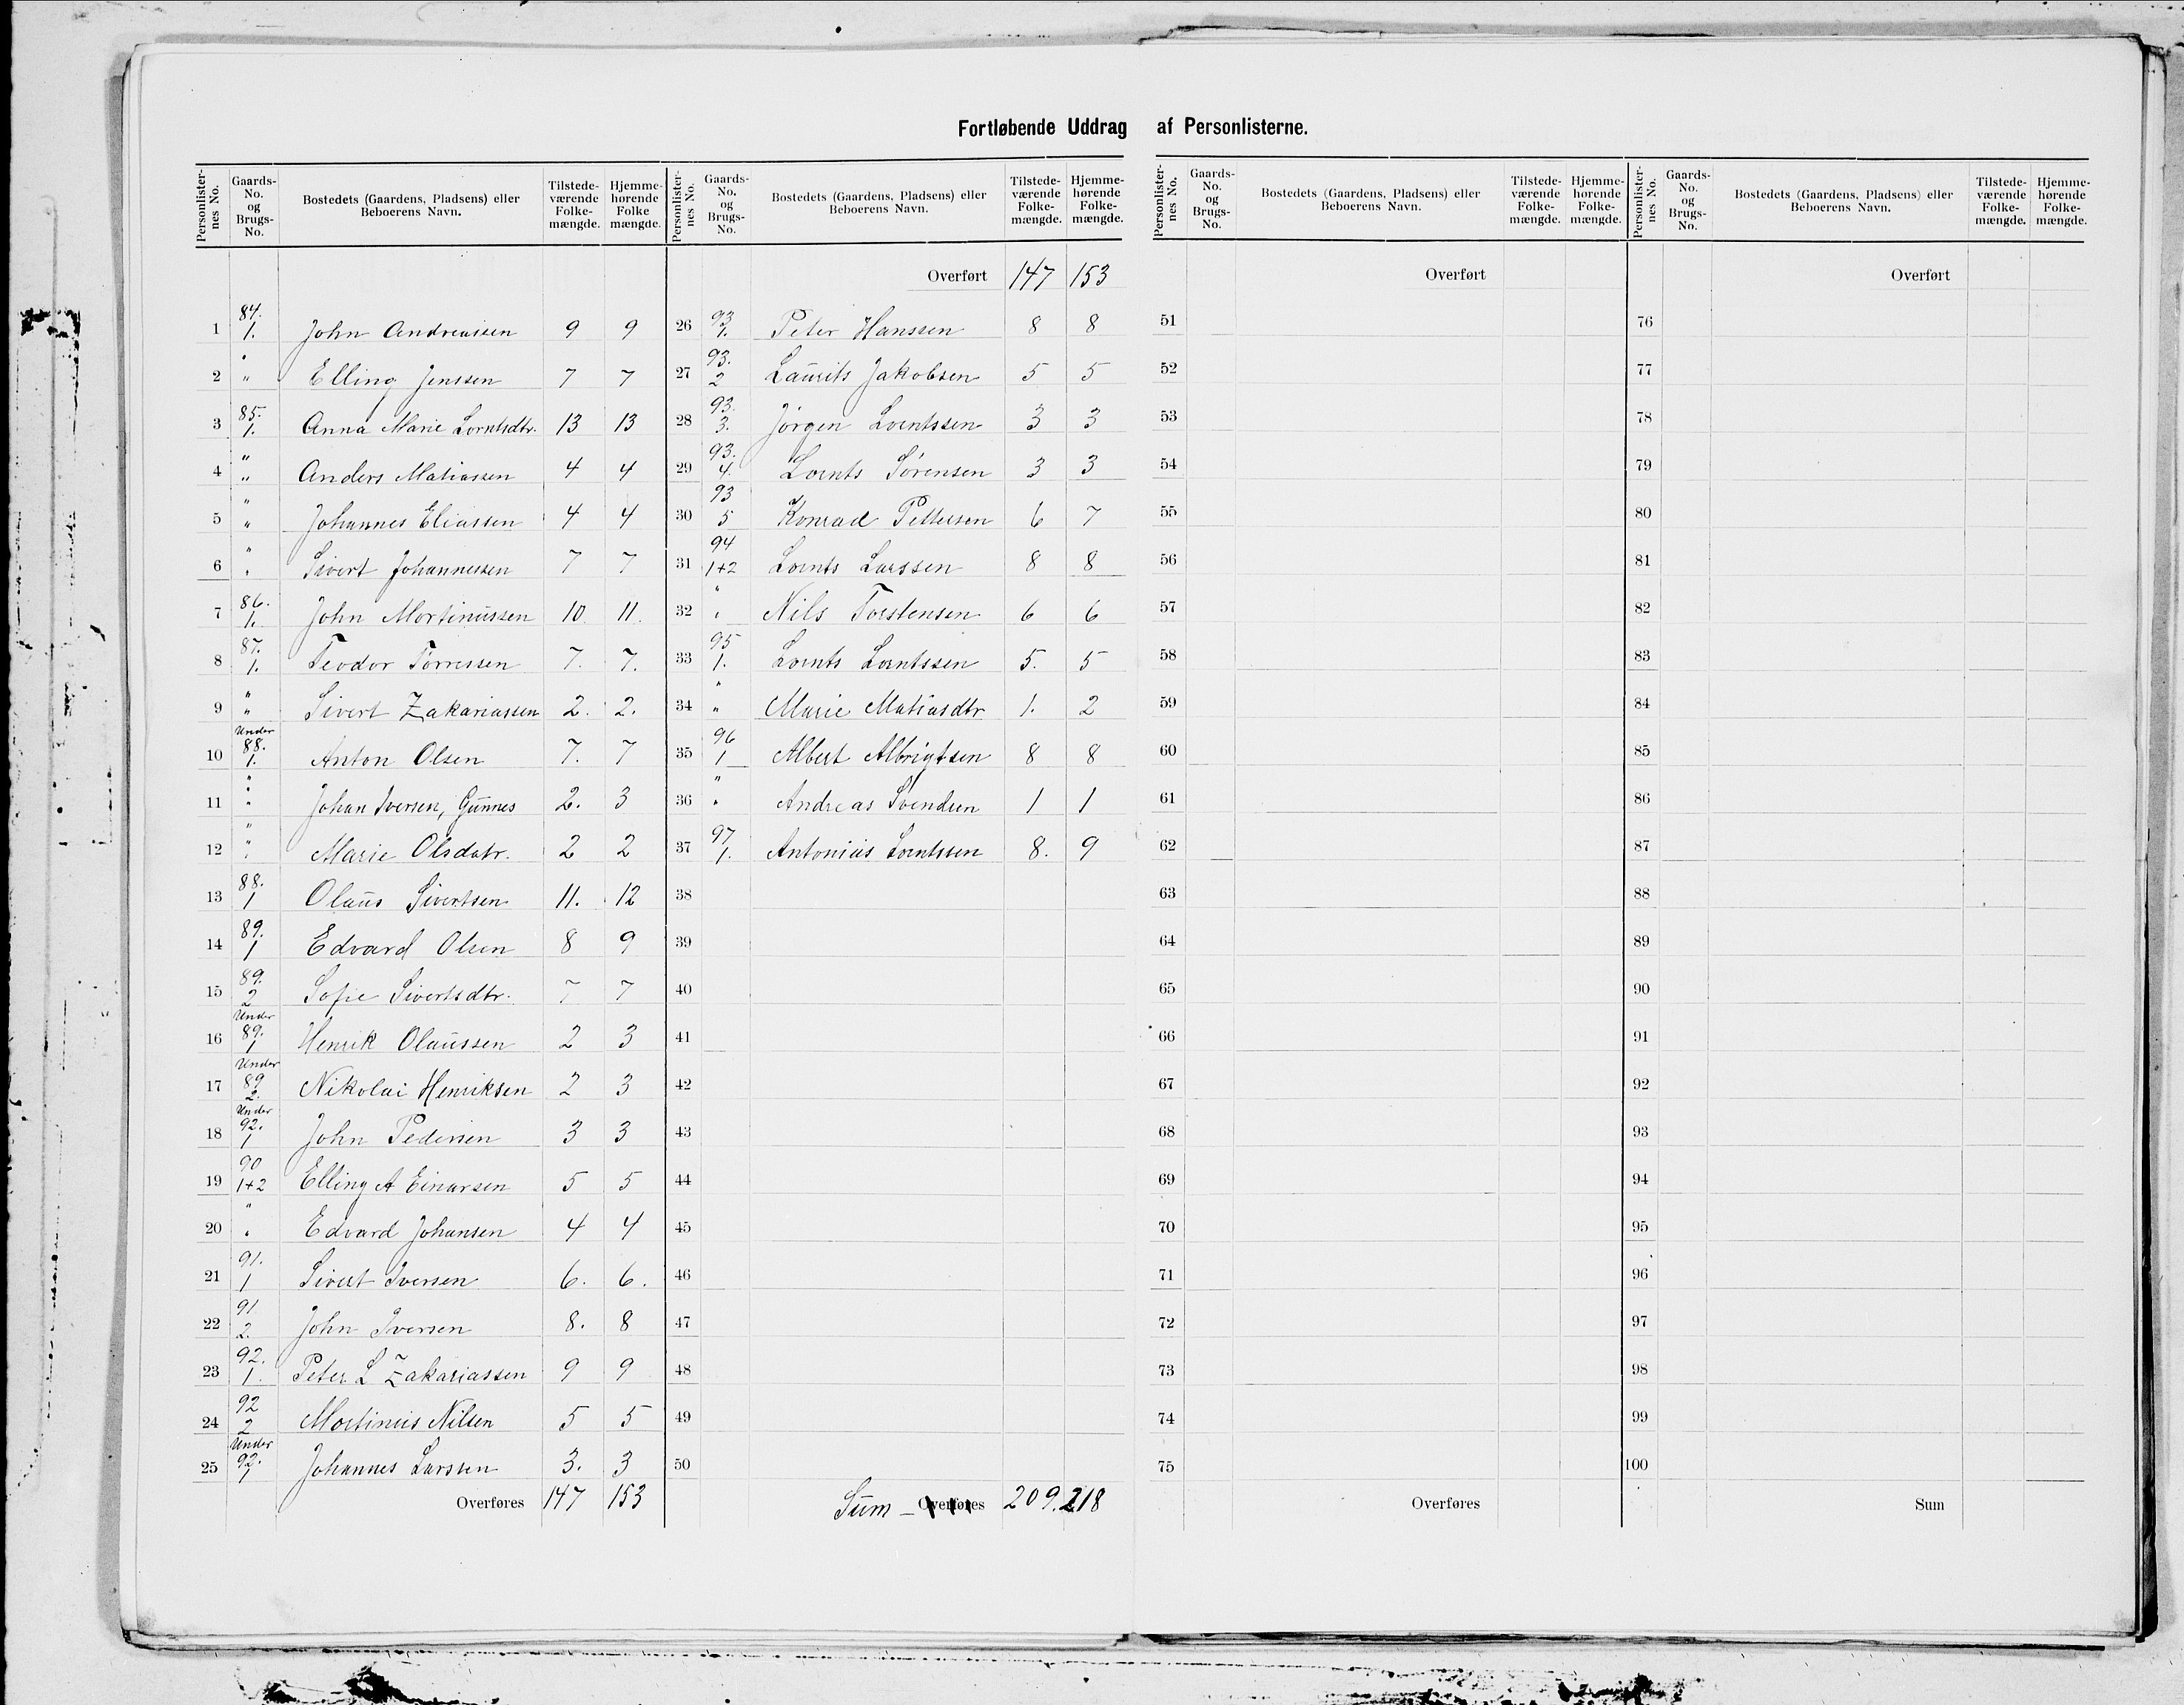 Fortløbende Uddrag af Personlisterne.
Personlister-nes No. | Gaards-No. og Brugs-No. | Bostedets (Gaardens, Pladsens) eller Beboerens Navn. | Tilstede-værende Folke-mængde. | Hjemme-hørende Folke mængde.
1 | 84. 1. | John Andreassen | 9 | 9
2 | " " | Elling Jenssen | 7 | 7
3 | 85. 1. | Anna Marie Lorntsdtr. | 13 | 13
4 | " " | Anders Matiassen | 4 | 4
5 | " " | Johannes Eliassen | 4 | 4
6 | " " | Sivert Johannessen | 7 | 7
7 | 86. 1. | John Mortinussen | 10 | 11.
8 | 87. 1. | Teodor Torressen | 7. | 7.
9 | " " | Sivert Zakariassen | 2. | 2.
10 | Under 88. 1. | Anton Olsen | 7. | 7
11 | " " | Johan Iversen, Gunnes | 2. | 3
12 | " " | Marie Olsdatr. | 2 | 2
13 | 88. 1 | Olaus Sivertsen | 11. | 12
14 | 89. 1 | Edvard Olsen | 8 | 9
15 | 89. 2 | Sofie Sivertsdtr. | 7 | 7
16 | Under 89. 1 | Henrik Olaussen | 2 | 3
17 | Under 89 2. | Nikolai Henriksen | 2 | 3
18 | Under 92. 1 | John Pedersen | 3 | 3
19 | 90 1+2 | Elling A Einarsen | 5 | 5
20 | " " | Edvard Johansen | 4 | 4
21 | 91. 1 | Sivert Iversen | 6. | 6.
22 | 91 2. | John Iversen | 8. | 8
23 | 92. 1. | Peter L Zakariassen | 9 | 9
24 | 92 2 | Mortinus Nilsen | 5 | 5
25 | Under 92. 1 | Johannes Larssen | 3. | 3
Overføres | 147 | 153
Personlister-nes No. | Gaards-No. og Brugs-No. | Bostedets (Gaardens, Pladsens) eller Beboerens Navn. | Tilstede-værende Folke-mængde. | Hjemme-hørende Folke-mængde.
Overført | 147 | 153
26 | 93 1. | Peter Hanssen | 8 | 8
27 | 93. 2 | Laurits Jakobsen | 5 | 5
28 | 93. 3. | Jörgen Lorntssen | 3 | 3
29 | 93. 4. | Lornts Sörensen | 3 | 3
30 | 93 5 | Konrad Pettersen | 6 | 7
31 | 94 1+2 | Lornts Larssen | 8 | 8
32 | " " | Nils Torstensen | 6 | 6
33 | 95 1. | Lornts Lorntssen | 5. | 5
34 | " " | Marie Matiasdtr | 1. | 2
35 | 96 1 | Albert Albrigtsen | 8 | 8
36 | " " | Andreas Svendsen | 1 | 1
37 | 97 1. | Antonius Lorntssen | 8. | 9
38
39
40
41
42
43
44
45
46
47
48
49
50
Sum - Overføres | 209. | 218
Personlister-nes No. | Gaards-No. og Brugs-No. | Bostedets (Gaardens, Pladsens) eller Beboerens Navn. | Tilstede-værende Folke-mængde. | Hjemme-hørende Folke-mængde.
Overført
51
52
53
54
55
56
57
58
59
60
61
62
63
64
65
66
67
68
69
70
71
72
73
74
75
Overføres
Personlister-nes No. | Gaards-No. og Brugs-No. | Bostedets (Gaardens, Pladsens) eller Beboerens Navn. | Tilstede-værende Folke-mængde. | Hjemme-hørende Folke-mængde.
Overført
76
77
78
79
80
81
82
83
84
85
86
87
88
89
90
91
92
93
94
95
96
97
98
99
100
Sum